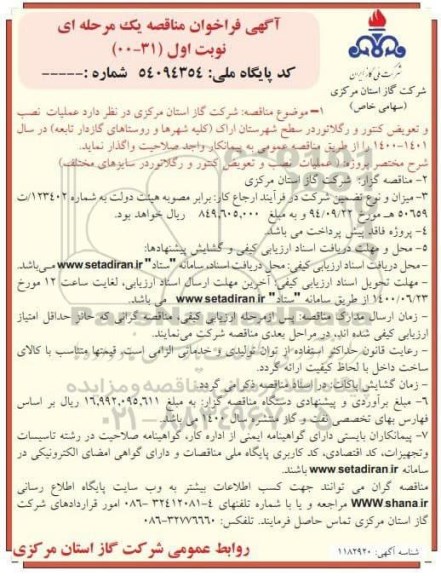 آگهی فراخوان مناقصه یک مرحله ای
نوبت اول (۳۱-۰۰)
کد پایگاه ملی: ۵۴۰۹۴۳۵۴ شماره :-----
شرکت ملی گاز ایران
شرکت گاز استان مرکزی
(سهامی خاص)
۱- موضوع مناقصه: شرکت گاز استان مرکزی در نظر دارد عملیات نصب
و تعویض کنتور و رگلاتوردر سطح شهرستان اراک (کلیه شهرها و روستاهای گازدار تابعه) در سال
۱۴۰۱-۱۴۰۰ را از طریق مناقصه عمومی به پیمانکار واجد صلاحیت واگذار نماید.
شرح مختصر پروژه: ( عملیات نصب و تعویض کنتور و رگلاتوردر سایزهای مختلف)
۲- مناقصه گزار: شرکت گاز استان مرکزی
۳- میزان و نوع تضمین شرکت در فرآیند ارجاع کار: برابر مصوبه هیئت دولت به شماره ۱۲۳۴۰۲/ت
۵۰۶۵۹ هـ مورخ ۹۴/۰۹/۲۲ و به مبلغ ۸۴۹,۶۰۵,۰۰۰ ریال خواهد بود.
۴- پروژه فاقد پیش پرداخت می باشد.
۵- محل و مهلت دریافت اسناد ارزیابی کیفی و گشایش پیشنهادها:
- محل دریافت اسناد ارزیابی کیفی: محل دریافت اسناد، سامانه "ستاد" www.setadiran.ir می‌باشد.
- مهلت تحویل اسناد ارزیابی کیفی: آخرین مهلت ارسال اسناد ارزیابی، لغایت ساعت ۱۲ مورخ
۱۴۰۰/۰۶/۲۳ از طریق سامانه "ستاد" www.setadiran.ir می باشد.
- زمان ارسال مدارک مناقصه: پس ازمرحله ارزیابی کیفی، مناقصه گرانی که حائز حداقل امتیاز
ارزیابی کیفی شده اند، در مراحل بعدی مناقصه شرکت می‌نمایند.
- رعایت قانون حداکثر استفاده از توان تولیدی و خدماتی الزامی است. قیمتها متناسب با کالای
ساخت داخل با لحاظ کیفیت ارائه گردد.
- زمان گشایش پاکات: در اسناد مناقصه ذکر می گردد
۶- مبلغ برآوردی و پیشنهادی دستگاه مناقصه گزار: به مبلغ ۱۶,۹۹۲,۰۹۵,۶۱۱ ریال بر اساس
فهارس بهای تخصصی نفت و گاز منتشره سال ۱۴۰۰ می باشد.
۷- پیمانکاران بایستی دارای گواهینامه ایمنی از اداره کار، گواهینامه صلاحیت در رشته تاسیسات
وتجهیزات، کد اقتصادی، کد کاربری پایگاه ملی مناقصات و دارای گواهی امضای الکترونیکی در
سامانه www.setadiran.ir باشند.
مناقصه گران می توانند جهت کسب اطلاعات بیشتر به وب سایت پایگاه اطلاع رسانی
WWW.shana.ir مراجعه و یا با شماره تلفنهای ۴-۳۲۴۱۲۰۸۱ -۰۸۶ امور قراردادهای شرکت
گاز استان مرکزی تماس حاصل فرمایند. تلفکس: ۳۲۷۷۶۶۶۰-۰۸۶
شناسه آگهی: ۱۱۸۲۹۲۰
روابط عمومی شرکت گاز استان مرکزی